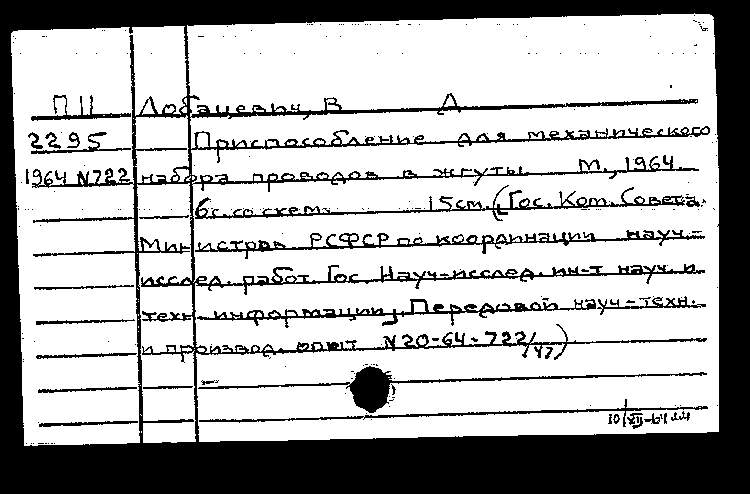 П11 Лобацевич, В Д
2295 Приспособление для механического
1964 N722 набора проводов в жгуты. М., 1964.
6с. со схем. 15см. (Гос. Ком. Совета
Министров РСФСР по координации науч.-
исслед. работ. Гос. Науч-исслед. ин-т науч. и
техн. информации, Передовой науч-техн.
и производ. опыт N20-64-722/47)
10/XII-64